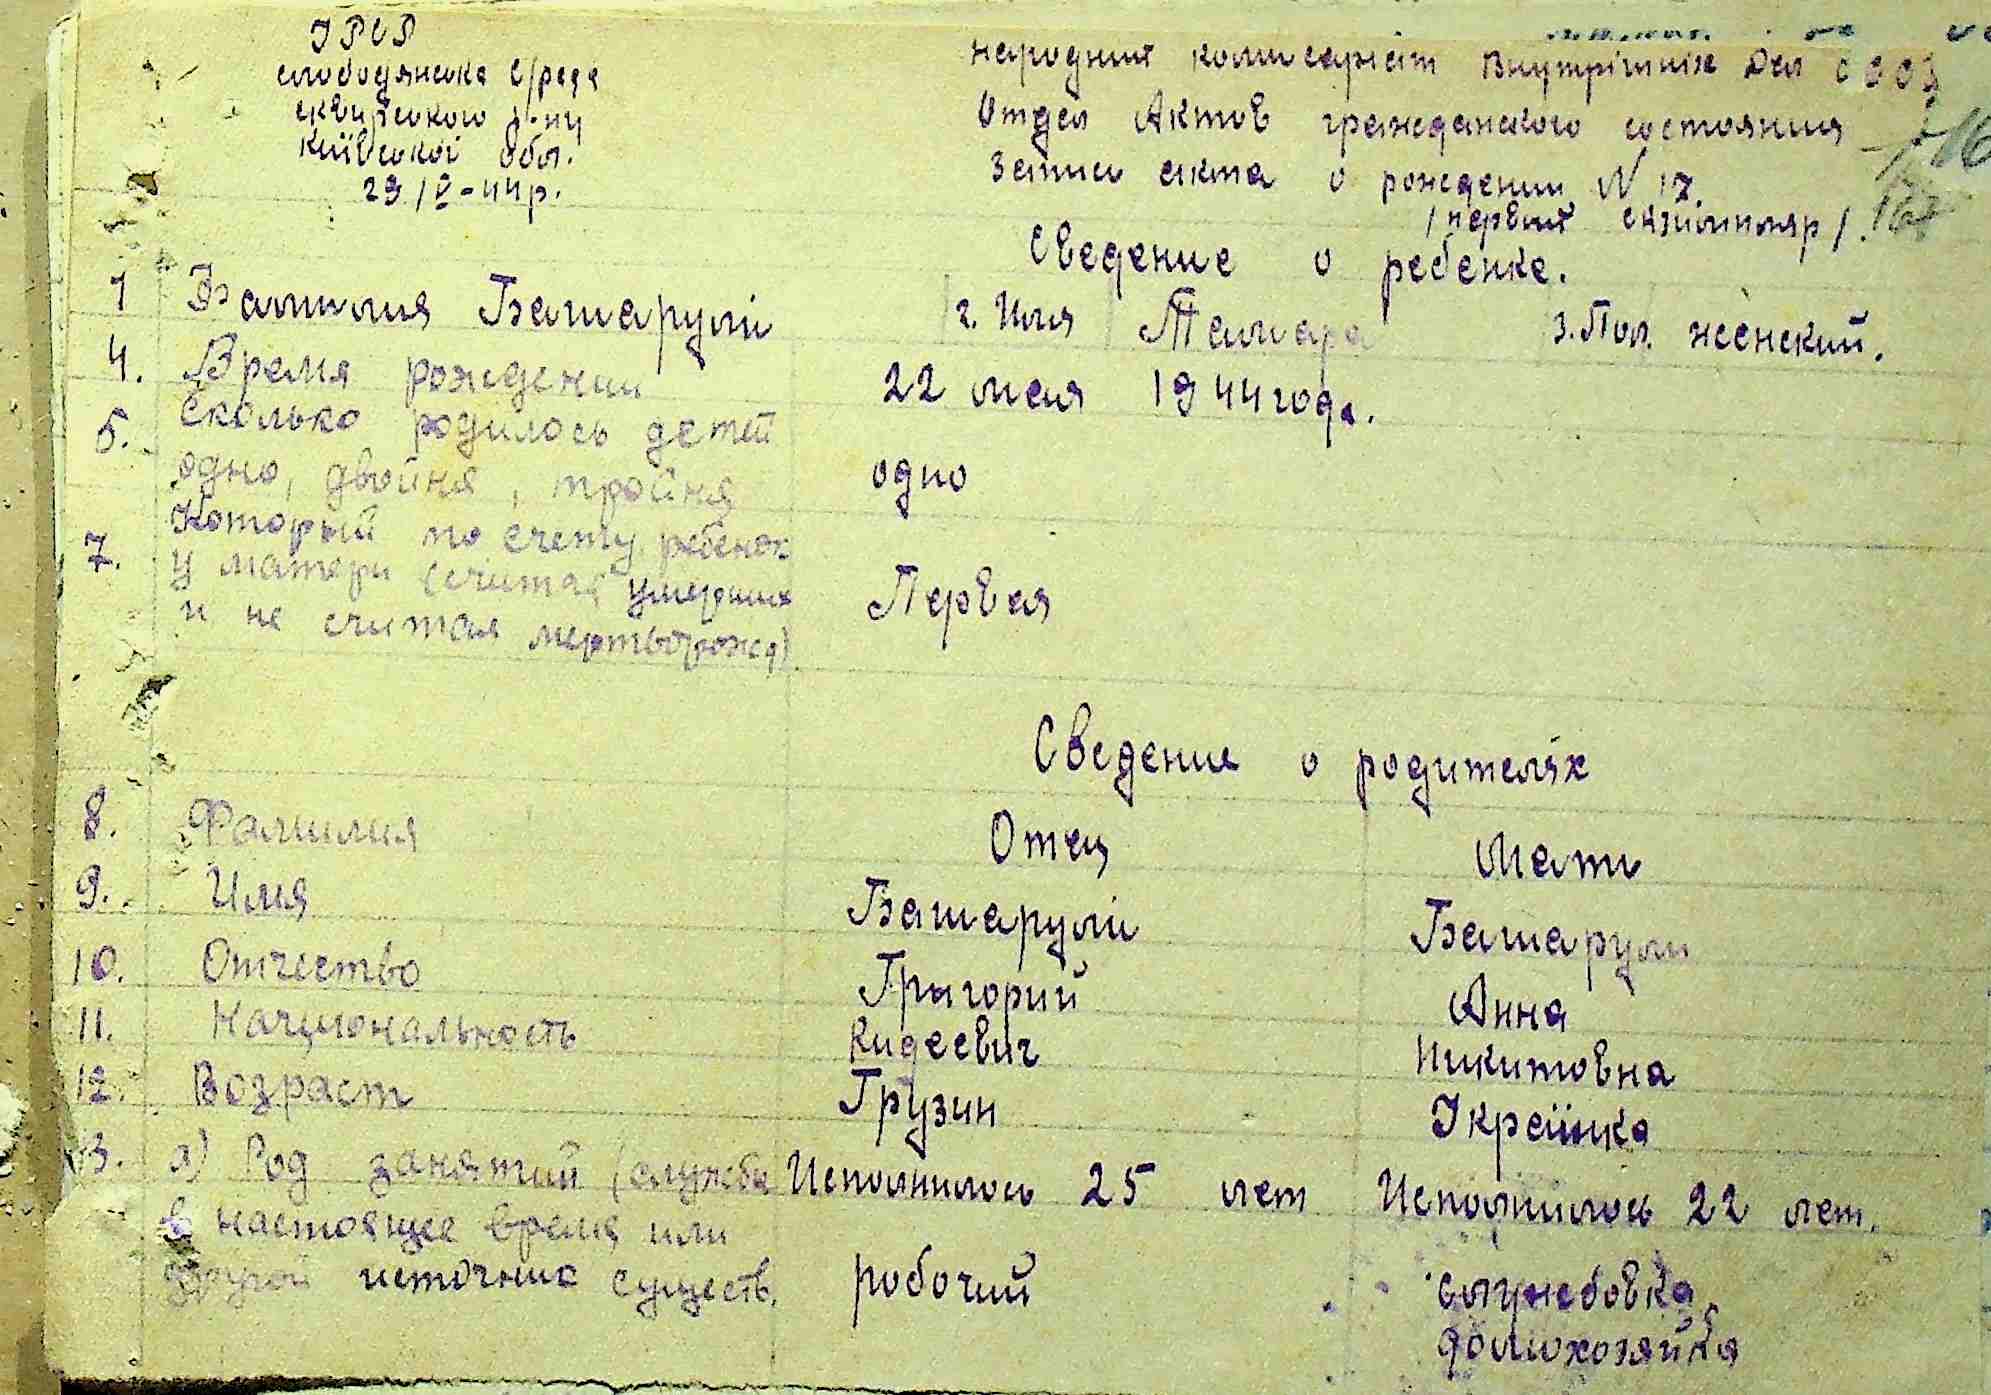 УРСР
слободянська с/рада
сквирського р-ну
Київської обл.
29/V-44р.
народний комисаріат Внутрішніх Дел СССР
Отдел Актов гражданского состояния
Запись акта о рождении N 17.
/первий екземпляр/.
Сведение о ребенке.
1 Фамилия Башарулі 2. Имя Тамара 3. Пол. женский.
4. Время рождении 22 мая 1944 года.
5. Сколько родилось детей
одно, двойня, тройня одно
Который по счету ребенок
7. у матери (считая умерших Первая
и не считая мертворожд)
Сведение о родителях
8. Фамилия Отец Мать
9. Имя Башарулі Башарули
10. Отчество Григорий Анна
11. Национальность Кидеевич Никитовна
12. Возраст Грузин Украінка
13. а) Род занятий (служба Исполнилось 25 лет Исполнилось 22 лет.
в настоящее время или
другой источник существ. робочий служебовка
домохозяйка